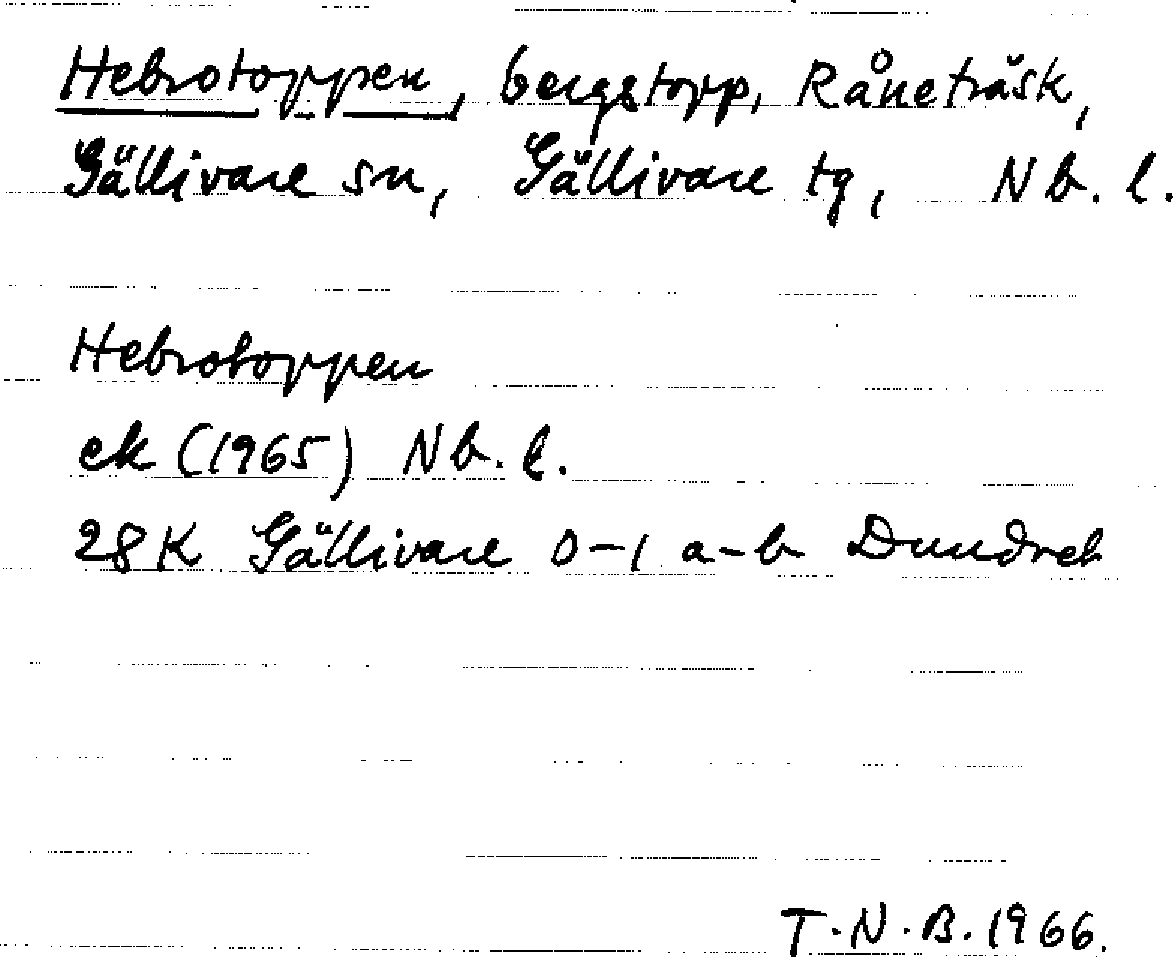 Hebrotoppen, bergstopp, Råneträsk,
Gällivare sn, Gällivare tg, Nb. l.
Hebrotoppen
ek (1965) Nb. l.
28K Gällivare 0-1 a-b Dundret
T.N.B. 1966.